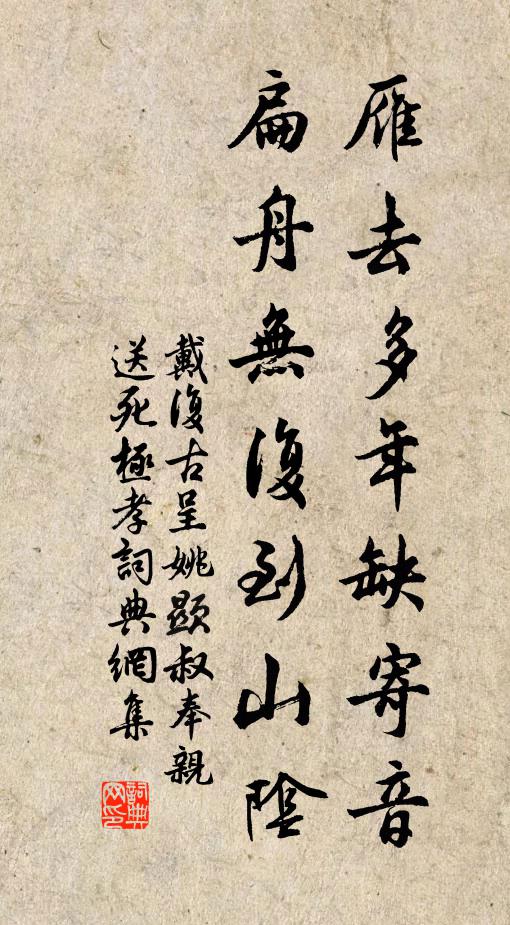 雁去多年缺寄音
扁舟無復到山陰
戴復古呈姚顯叔奉親
送死極孝詞典網集
詞典网印